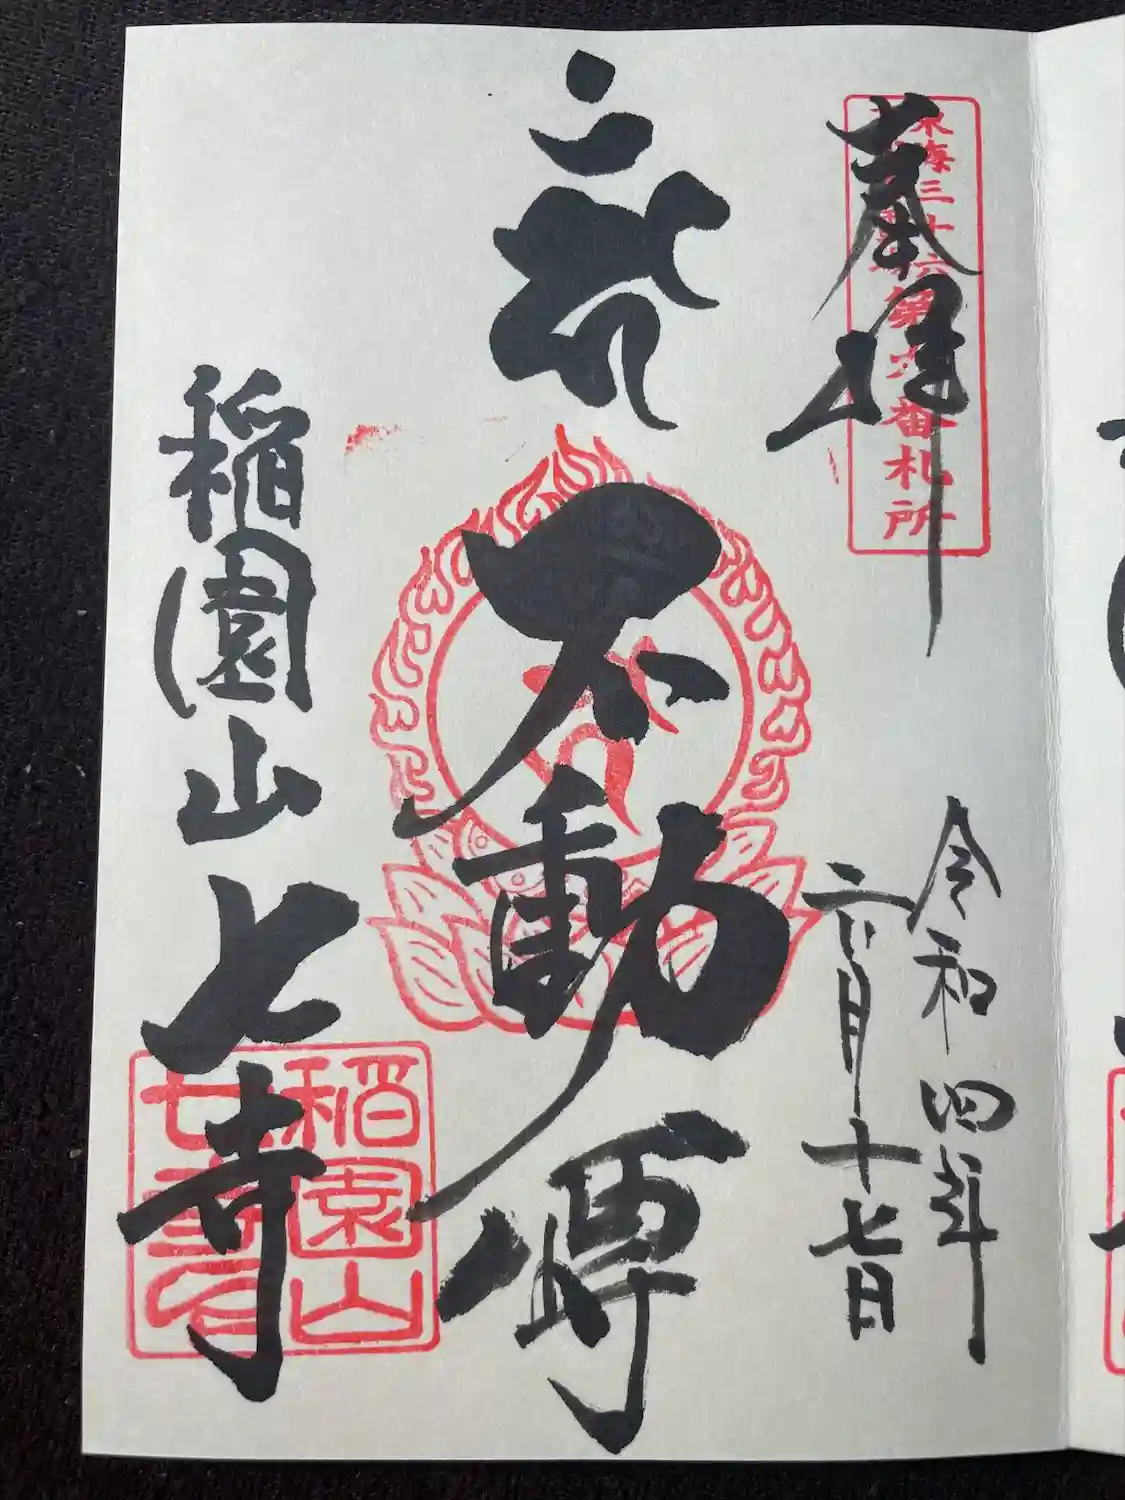 奉拝
東海三十六
第六番札所
令和四年
六月十七日
不動尊
稲園山七寺
稲園山
七寺印